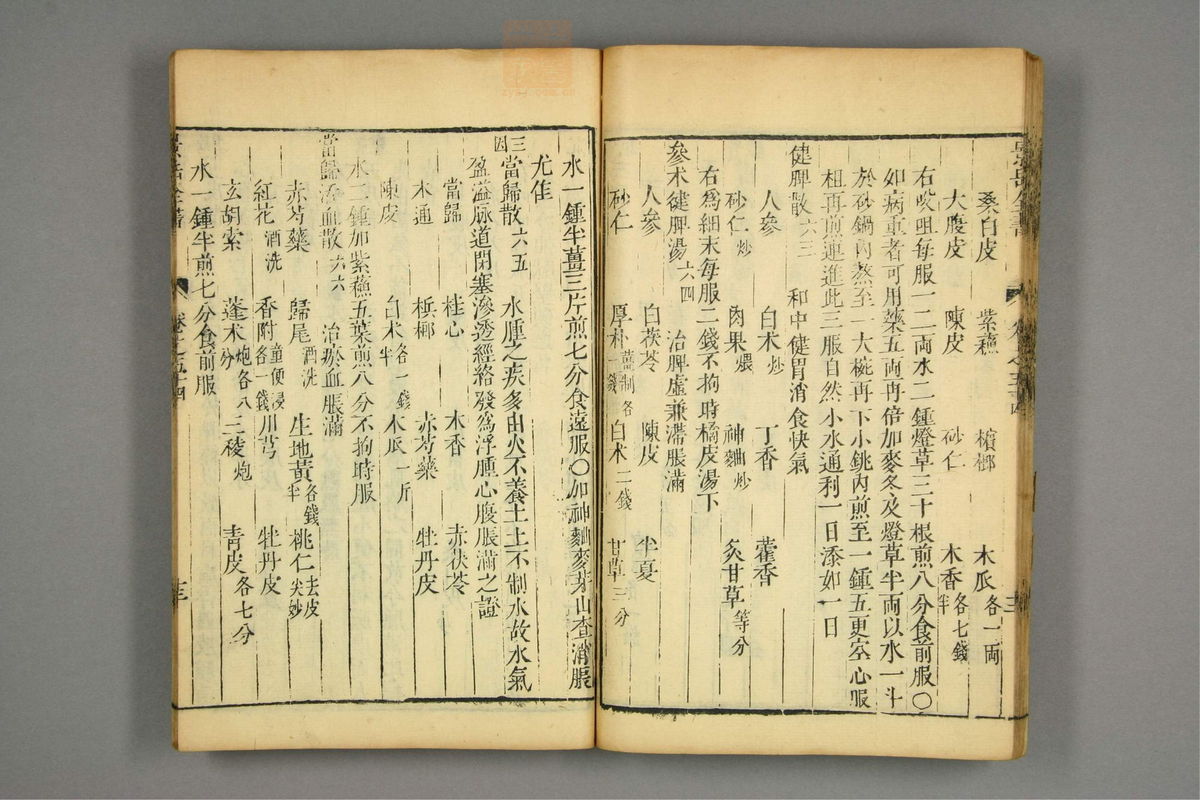 桑白皮 紫蘇 檳榔 木瓜各一兩
大腹皮 陳皮 砂仁 木香各七錢半
右㕮咀每服一二兩水二鍾燈草三十根煎八分食前服○
如病重者可用藥五兩再倍加麥冬及燈草半兩以水一斗
於砂鍋內熬至一大椀再下小銚內煎至一鍾五更空心服
粗再煎連進此三服自然小水通利一日添如一日
健脾散六三 和中健胃消食快氣
人參 白朮炒 丁香 藿香
砂仁炒 肉果煨 神麯炒 炙甘草等分
右爲細末每服二錢不拘時橘皮湯下
參朮健脾湯六四 治脾虛兼滯脹滿
人參 白茯苓 陳皮 半夏
砂仁 厚朴薑制各一錢 白朮二錢 甘草三分
水一鍾半薑三片煎七分食遠服○加神麯麥芽山查消脹
尤佳
三因當歸散六五 水腫之疾多由火不養土土不制水故水氣
盈溢脉道閉塞滲透經絡發爲浮腫心腹脹滿之證
當歸 桂心 木香 赤茯苓
木通 梹榔 赤芍藥 牡丹皮
陳皮 白朮各一錢半 木瓜一斤
水二鍾加紫蘇五葉煎八分不拘時服
當歸活血散六六 治瘀血脹滿
赤芍藥 歸尾酒洗 生地黃各錢半 桃仁去皮尖炒
紅花酒洗 香附童便浸各一錢 川芎 牡丹皮
玄胡索 蓬朮炮各八分 三稜炮 青皮各七分
水一鍾半煎七分食前服
景岳全書 卷之五十四